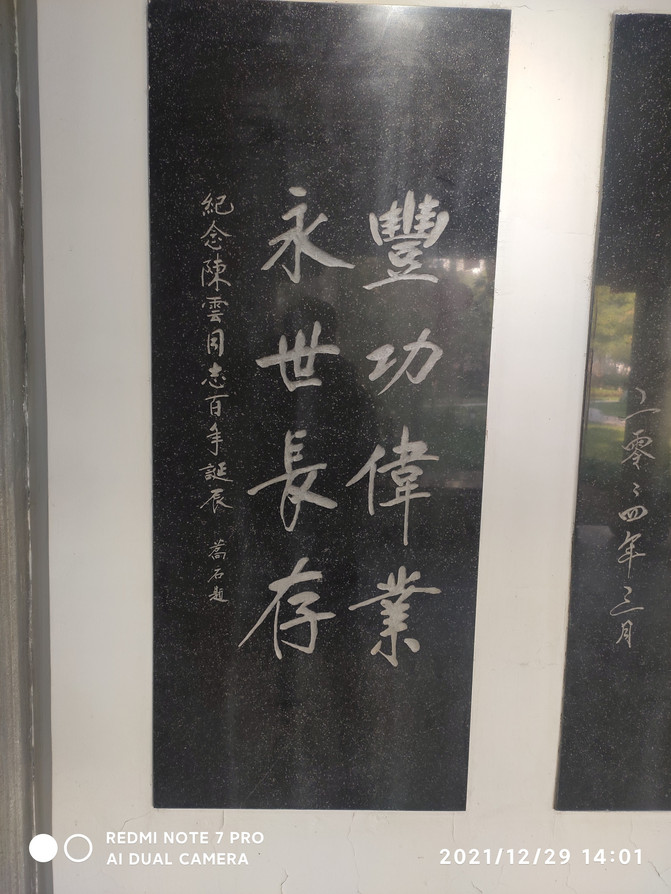 豐功偉業
永世長存
紀念陳雲同志百年誕辰 蒿石題
二零零四年三月
REDMI NOTE 7 PRO
AI DUAL CAMERA
2021/12/29 14:01